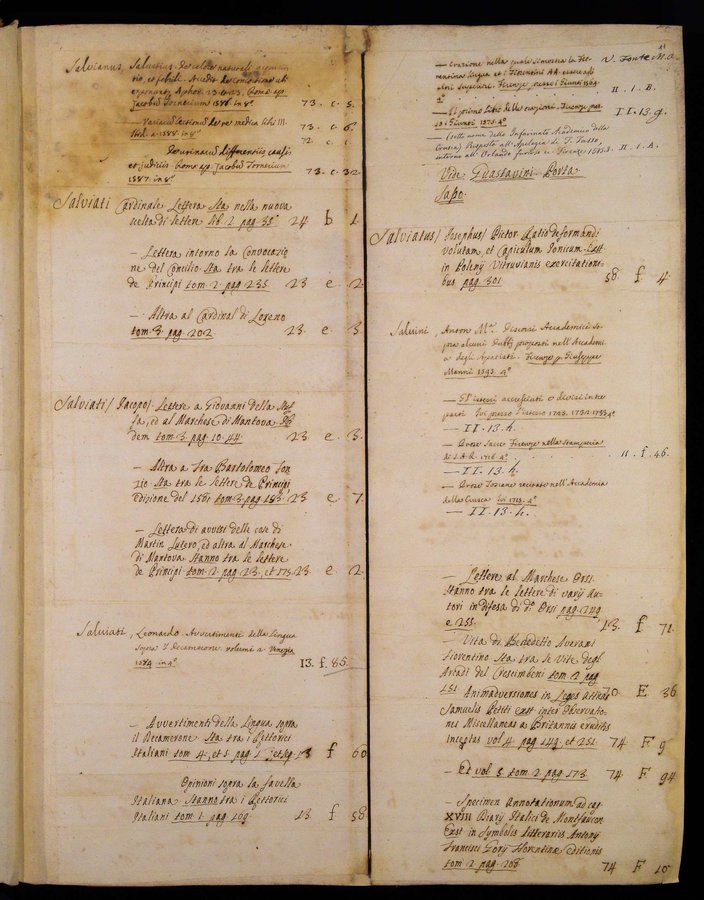 Salvianus, Salustius. De calore naturali
et febrili. Accedit
exponuntur Aphor.
Jacobum Tornerium 1586. in 8°. 73. c. 5.
— Variarum lectionum de re medica libri III.
1588. in 8°. 73. c. 6.
72. c. 1.
De urinarum differentiis causis
et judiciis. Romæ ap. Jacobum Tornerium
1587. in 8° 73. c. 32
Salviati Cardinale Lettera Sta nella nuova
scelta di lettere lib. 2. pag. 35° 24 b 1.
— Lettera intorno la Convocazio
ne del Concilio Sta tra le lettere
de Principi tom. 2. pag. 235. 23 e. 2.
— Altra al Cardinal di Loreno
tom. 3. pag. 202 23. e. 3.
Salviati / Jacopo / Lettere a Giovanni della Stuf
fa, ed al Marchese di Mantova.
dem tom. 3. pag. 10. 44. 23 e. 3.
— Altra a Fra Bartolomeo Son
zio Sta tra le lettere de Principi
Edizione del 1561 tom. 3. pag. 153. 23 e 7.
— Lettera di avvisi delle cose di
Martin Lutero, ed altra al Marchese
di Mantova Stanno tra le lettere
de Principi tom. 2. pag. 23. et 175. 23 e 2.
Salviati, Leonardo. Avvertimenti della Lingua
sopra 'l Decamerone. volumi 2. Venezia
1584. in 4° 13. f. 85.
— Avvertimenti della Lingua sopra
il Decamerone Sta tra i Rettorici
Italiani tom. 4. et 5. pag. 1. et seq. 13 f 60
Opinioni sopra la favella
Italiana Stanno tra i Rettorici
Italiani tom. 1. pag. 169. 13. f 58.
— Orazione nella quale si mostra la Fio- V. Fonte M. O.
rentina lingua et i Fiorentini AA. essere
Altri Superiori. Firenze, presso i Giunti 1564
4° II. 1. B.
— Il primo libro delle orazioni. Firenze per
i Giunti 1575. 4° II. 13. g.
— (sotto nome dello Infarinato Accademico della
Crusca) Risposta all'Apologia di T. Tasso
intorno all'Orlando furioso. Firenze 1585.8. II. 1. A.
Vide Guastavini. Porta
Sapo.
Salviatus / Josephus / Pictor Ratio deformandi
volutam, et Capiculum Jonicum. Exst.
in Polenij Vitruvianis exercitationi-
bus pag. 301 58. f 4.
Salvini, Anton M.ª Discorsi Accademici so
pra alcuni dubbj proposti nell' Accademi
a degli Apatisti. Firenze p. Giuseppe
Manni 4°
— Gl' istessi accresciuti e divisi in tre
parti
— II. 13. h.
— Prose Sacre Firenze nella Stamperia
di S. A. R. 1716. 4° II. f. 46.
— II. 13. h.
— Prose Toscane recitate nell' Accademia
della Crusca ivi 1715. 4°
— II. 13. h.
— Lettere al Marchese Orsi.
Stanno tra le lettere di varj Au-
tori in difesa di d° Orsi pag. 249.
e 255. 13. f 71.
— Vita di Benedetto Averani
Fiorentino Sta tra le Vite degl'
Arcadi del Crescimbeni tom. 2. pag.
151. 70 E 36
Animadversiones in Leges Atticas
Samuelis Petiti exst. inter Observatio-
nes Miscellaneas a Britannis eruditis
inceptas vol. 4. pag. 149. et 251. 74 F 9
— Et vol. 5. tom. 2. pag. 173 74 F 94
— Specimen Annotationum ad cap.
XVIII Diarij Italici de Montfaucon
Exst in Symbolis litterarijs Antonij
Francisci Gorij Florentinæ editionis
tom. 2. pag. 208 74 F 10